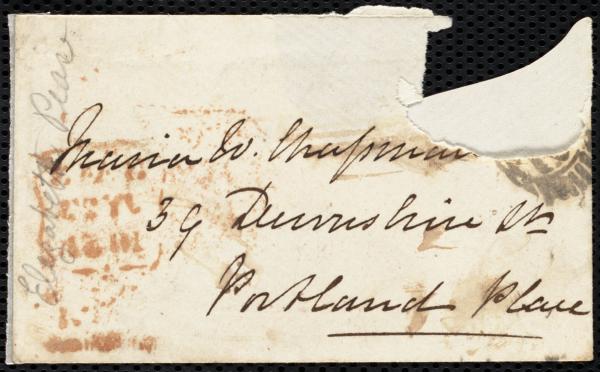 Maria W. Chapman
39 Devonshire St
Portland Place
Elizabeth Pease